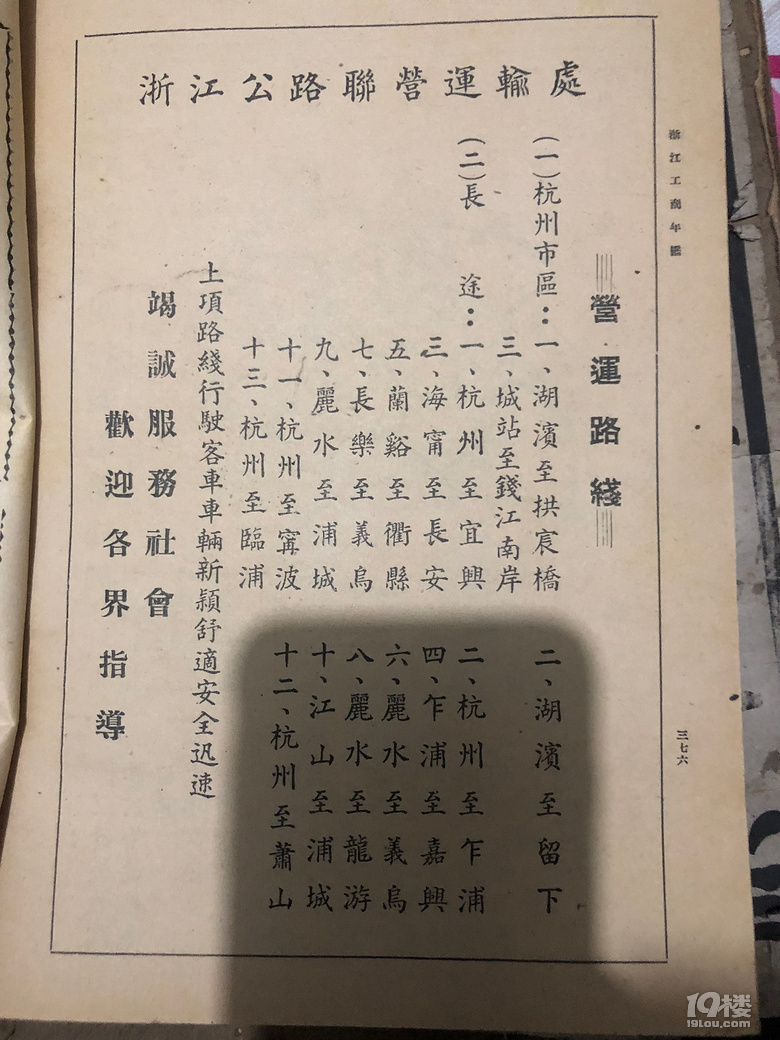 浙江公路聯營運輸處
浙江工商年鑑
三七六
營運路綫
(一)杭州市區：一、湖濱至拱宸橋 二、湖濱至留下
三、城站至錢江南岸
(二)長途：一、杭州至宜興 二、杭州至乍浦
三、海甯至長安 四、乍浦至嘉興
五、蘭谿至衢縣 六、麗水至義烏
七、長樂至義烏 八、麗水至龍游
九、麗水至浦城 十、江山至浦城
十一、杭州至甯波 十二、杭州至蕭山
十三、杭州至臨浦
上項路綫行駛客車車輛新穎舒適安全迅速
竭誠服務社會
歡迎各界指導
19楼
19lou.com